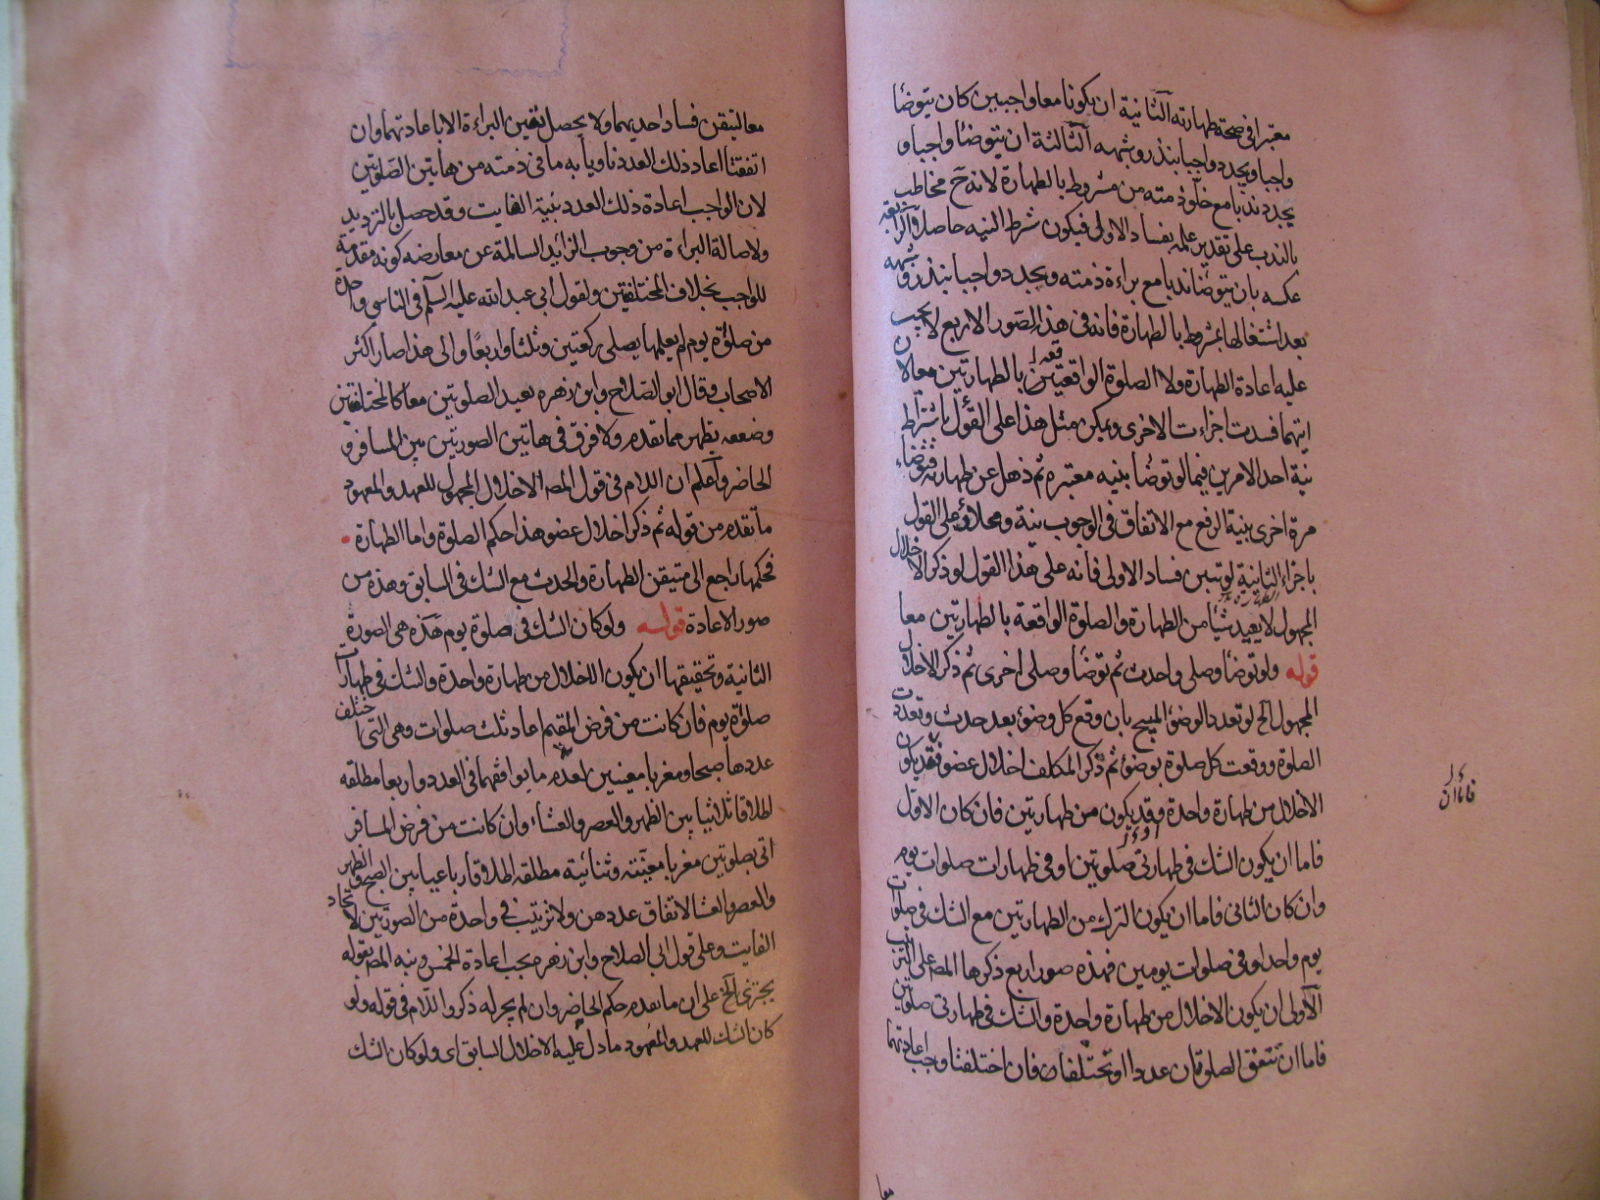 معتبرا في صحة طهارته الثانية ان يكونا معا واجبين كان يتوضأ
واجبا ويجدد واجبا بنذر وشبهه الثالثة ان يتوضأ واجبا و
يجدد ندبا مع خلو ذمته من مشروط بالطهارة لانه ح مخاطب
بالندب على تقدير علمه بفساد الاولى فيكون شرط النيه حاصلا والرابعة
عكسه بان يتوضأ ندبا مع براءة ذمته ويجدد واجبا بنذر وشبهه
بعد اشتغالها بمشروط بالطهارة فانه في هذه الصور الاربع لا يجب
عليه اعادة الطهارة ولا الصلوة الواقعة بالطهارتين معا لان
ايتهما فسدت اجزأت الاخرى ويمكن مثل هذا على القول باشتراط
نية احد الامرين فيما لو توضأ بنيه معتبره ثم ذهل عن طهارته فتوضأ
مرة اخرى بنية الرفع مع الاتفاق في الوجوب بنية ومحلا وعلى القول
باجزاء الثانية لو تبين فساد الاولى فانه على هذا القول لو ذكر الاخلال
المجهول لا يعيد شيأ من الطهارة والصلوة الواقعة بالطهارتين معا
قوله ولو توضأ وصلى واحدث ثم توضأ وصلى اخرى ثم ذكر الاخلال
المجهول الخ لو تعدد الوضؤ المبيح بان وقع كل وضؤ بعد حدث وتعددت
الصلوة ووقعت كل صلوة بوضؤ ثم ذكر المكلف اخلال عضو فقد يكون
الاخلال من طهارة واحدة وقد يكون من طهارتين فان كان الاول
فاما ان يكون الشك في طهارتي صلوتين او في طهارات صلوات يوم
وان كان الثاني فاما ان يكون الترك من الطهارتين مع الشك في صلوات
يوم واحد او في صلوات يومين فهذه صور اربع ذكرها المص على الترتيب
الاولى ان يكون الاخلال من طهارة واحدة والشك في طهارتي صلوتين
فاما ان تتفق الصلوتان عددا او تختلفان فان اختلفتا وجب اعادتهما
فاما ان
معا لتيقن فساد احديهما ولا يحصل يقين البراءة الا باعادتهما وان
اتفقتا اعاد ذلك العدد ناويا به ما في ذمته من هاتين الصلوتين
لان الواجب اعادة ذلك العدد بنية الفايت وقد حصل بالترديد
ولاصالة البراءة من وجوب الزائد السالمة عن معارضه كونه مقدمة
للواجب بخلاف المختلفتين ولقول ابي عبد الله عليه السلم في الناسي واحدة
من صلوة يوم لم يعلمها يصلي ركعتين وثلثا واربعا والى هذا صار اكثر
الاصحاب وقال ابو الصلاح وابن زهره يعيد الصلوتين معا كالمختلفتين
وضعفه يظهر مما تقدم ولا فرق في هاتين الصورتين بين المسافر و
الحاضر واعلم ان اللام في قول المص الاخلال المجهول للعهد والمعهود
ما تقدم من قوله ثم ذكر اخلال عضو هذا حكم الصلوة واما الطهارة
فحكمها راجع الى متيقن الطهارة والحدث مع الشك في السابق وهذه من
صور الاعادة قوله ولو كان الشك في صلوة يوم هذه هي الصورة
الثانية وتحقيقها ان يكون الاخلال من طهارة واحدة والشك في طهارات
صلوة يوم فان كانت من فرض المقيم اعاد ثلث صلوات وهي التي تختلف
عددها صبحا ومغربا معينين لعدم ما يوافقهما في العدد واربعا مطلقه
اطلاقا ثلاثيا بين الظهر والعصر والعشاء وان كانت من فرض المسافر
اتى بصلوتين مغربا معينة وثنائية مطلقه اطلاقا رباعيا بين الصبح والظهر
والعصر والعشا لاتفاق عددهن ولا ترتيب في واحدة من الصورتين لاتحاد
الفايت وعلى قول ابي الصلاح وابن زهره يجب اعادة الخمس ونبه المص بقوله
يجتزى الخ على ان ما تقدم حكم الحاضر وان لم يجر له ذكر واللام في قوله ولو
كان الشك للعهد والمعهود ما دل عليه الاخلال السابق اى ولو كان الشك